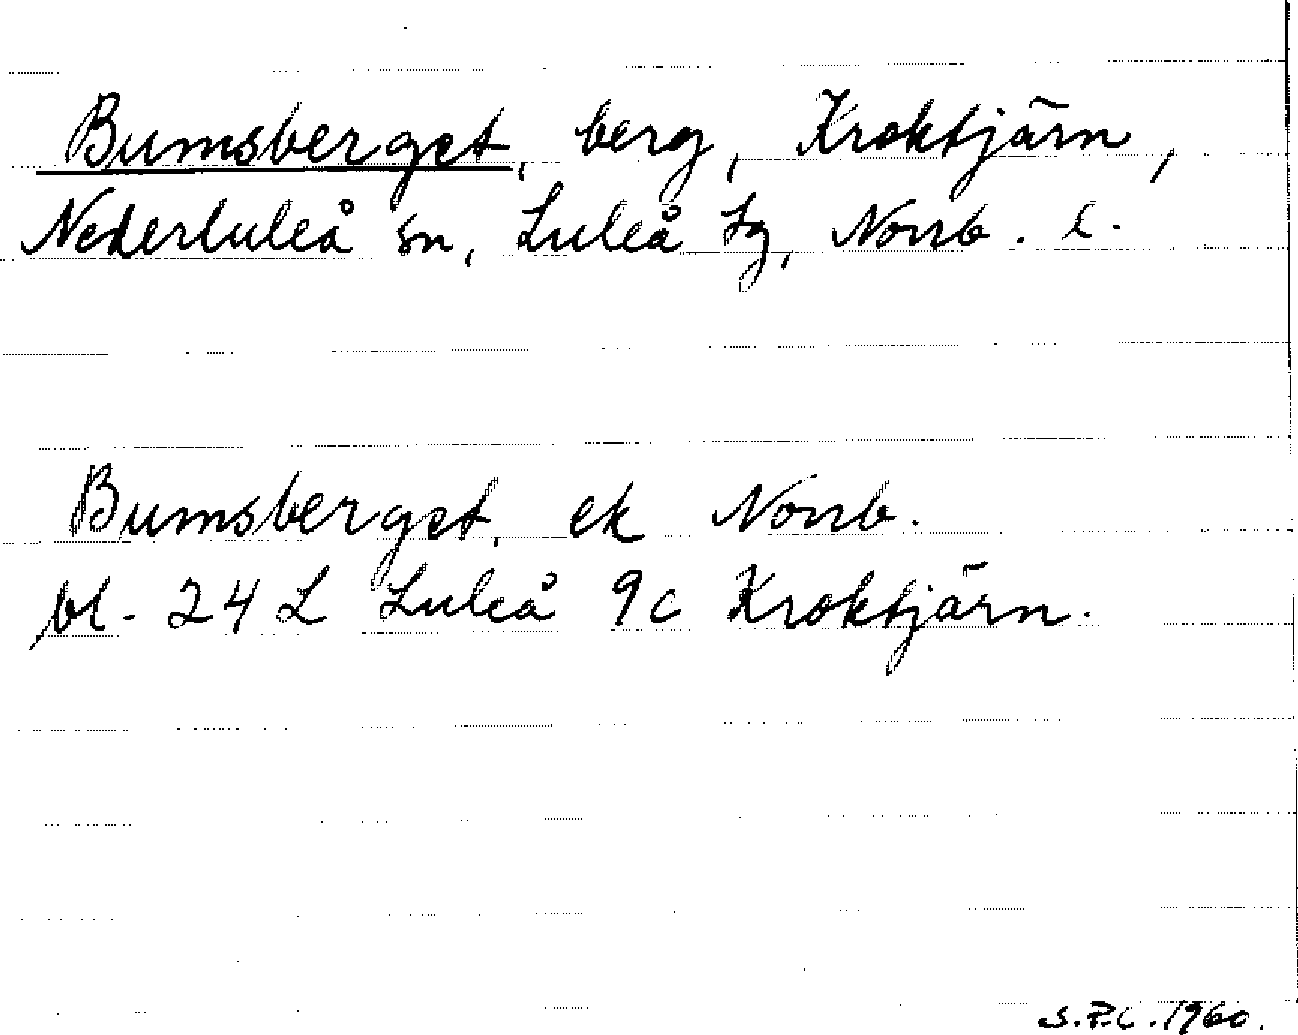 Bumsberget, berg, Kroktjärn,
Nederluleå sn, Luleå tg, Norrb. l.
Bumsberget, ek Norrb.
bl. 24 L Luleå 9c Kroktjärn.
S.P.C. 1960.